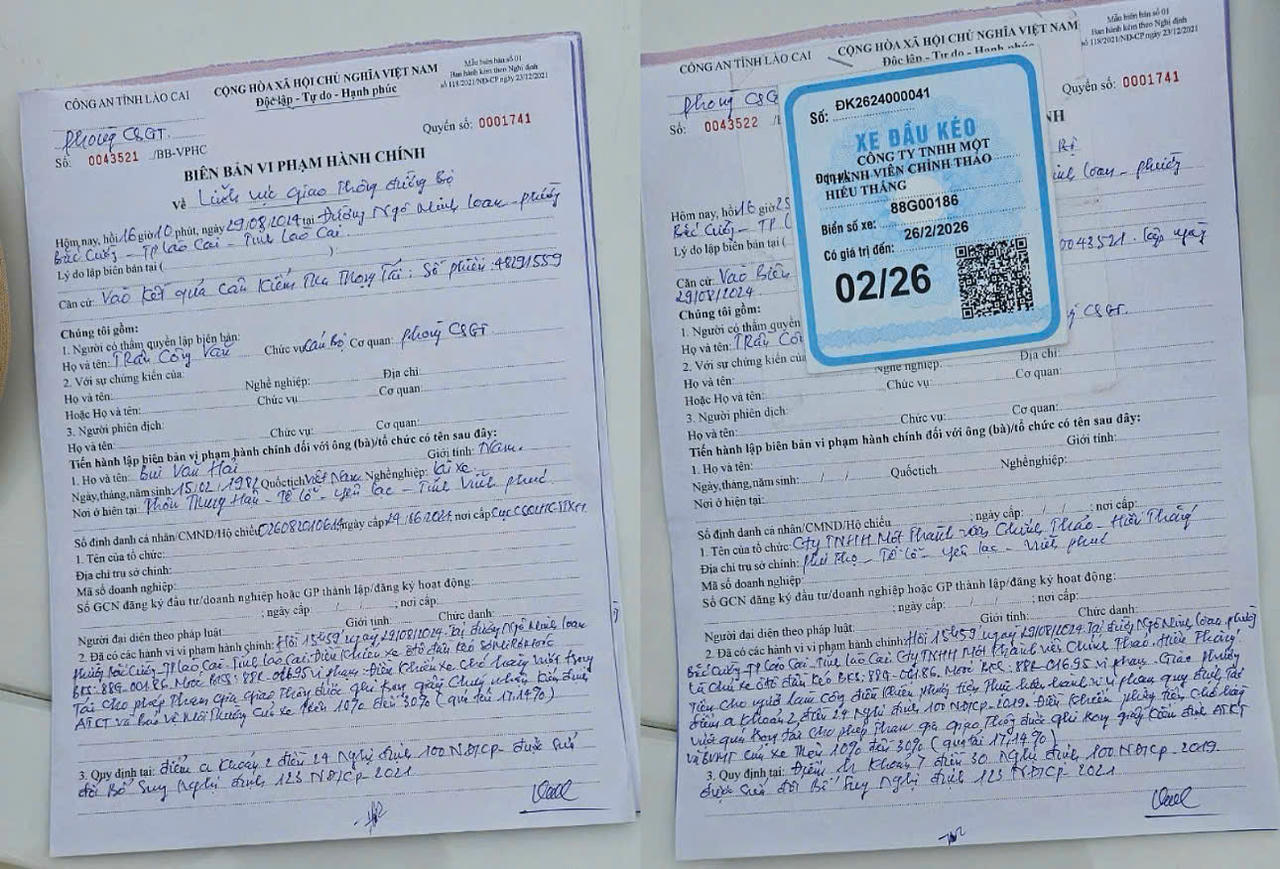 CÔNG AN TỈNH LÀO CAI
CỘNG HÒA XÃ HỘI CHỦ NGHĨA VIỆT NAM
Độc lập - Tự do - Hạnh phúc
Mẫu biên bản số 01
Ban hành kèm theo Nghị định
số 118/2021/NĐ-CP ngày 23/12/2021
Phòng CSGT.
Số: 0043521 /BB-VPHC
Quyển số: 0001741
BIÊN BẢN VI PHẠM HÀNH CHÍNH
Về Lĩnh vực giao thông đường bộ
Hôm nay, hồi 16 giờ 10 phút, ngày 29/08/2024 tại Đường Ngô Minh Loan - phường
Bắc Cường - TP Lào Cai - Tỉnh Lào Cai.
Lý do lập biên bản tại ( )
Căn cứ: Vào Kết quả cân kiểm tra trọng tải: Số phiếu: 48291559
Chúng tôi gồm:
1. Người có thẩm quyền lập biên bản:
Họ và tên: Trần Công Văn Chức vụ: Cán Bộ Cơ quan: phòng CSGT
2. Với sự chứng kiến của:
Họ và tên: Nghề nghiệp: Địa chỉ:
Hoặc Họ và tên: Chức vụ Cơ quan:
3. Người phiên dịch:
Họ và tên: Chức vụ: Cơ quan:
Tiến hành lập biên bản vi phạm hành chính đối với ông (bà)/tổ chức có tên sau đây:
1. Họ và tên: Bùi Văn Hải Giới tính: Nam.
Ngày, tháng, năm sinh: 15/02/1982 Quốc tịch Việt Nam Nghề nghiệp: Lái xe
Nơi ở hiện tại: Thôn Trung Hậu - Tề lỗ - Yên lạc - Tỉnh Vĩnh phúc
Số định danh cá nhân/CMND/Hộ chiếu ngày cấp nơi cấp
1. Tên của tổ chức:
Địa chỉ trụ sở chính:
Mã số doanh nghiệp:
Số GCN đăng ký đầu tư/doanh nghiệp hoặc GP thành lập/đăng ký hoạt động:
; ngày cấp: / / ; nơi cấp:
Người đại diện theo pháp luật: Giới tính: Chức danh:
2. Đã có các hành vi vi phạm hành chính: Hồi 15h59' ngày 29/08/2024. Tại đường Ngô Minh Loan
phường Bắc Cường - TP Lào Cai - Tỉnh Lào Cai. Điều khiển xe ôtô đầu kéo
BKS: 88G-00186. Moóc BKS: 88R-01695 vi phạm: Điều khiển xe chở hàng vượt trọng
tải cho phép tham gia giao thông được ghi trong giấy chứng nhận kiểm định
ATKT và bảo vệ Môi trường của xe trên 10% đến 30% (quá tải 17,14%)
3. Quy định tại: điểm a khoản 2 điều 24 Nghị định 100 NĐ/CP được sửa
đổi Bổ sung Nghị định 123 NĐ/CP 2021
CÔNG AN TỈNH LÀO CAI
CỘNG HÒA XÃ HỘI CHỦ NGHĨA VIỆT NAM
Độc lập - Tự do - Hạnh phúc
Mẫu biên bản số 01
Ban hành kèm theo Nghị định
số 118/2021/NĐ-CP ngày 23/12/2021
Phòng CSG
Số: 0043522
Quyển số: 0001741
Số: ĐK2624000041
XE ĐẦU KÉO
CÔNG TY TNHH MỘT
Đơn vị: THÀNH VIÊN CHỈNH THẢO
HIẾU THẮNG
Biển số xe: 88G00186
Có giá trị đến: 26/2/2026
02/26
Hôm nay, hồi 16 giờ 25
Loan - phường
Bắc Cường - TP
Lý do lập biên bản tại (
Căn cứ: Vào Biên
0043521. lập ngày
29/08/2024
Chúng tôi gồm:
1. Người có thẩm quyền
Họ và tên: Trần Cô
CSGT.
2. Với sự chứng kiến của
Họ và tên: Nghề nghiệp: Địa chỉ:
Hoặc Họ và tên: Chức vụ: Cơ quan:
3. Người phiên dịch:
Họ và tên: Chức vụ: Cơ quan:
Tiến hành lập biên bản vi phạm hành chính đối với ông (bà)/tổ chức có tên sau đây:
1. Họ và tên: Giới tính:
Ngày, tháng, năm sinh: / / Quốc tịch Nghề nghiệp:
Nơi ở hiện tại:
Số định danh cá nhân/CMND/Hộ chiếu ; ngày cấp: / / ; nơi cấp:
1. Tên của tổ chức: Cty TNHH Một Thành viên Chỉnh Thảo - Hiếu Thắng
Địa chỉ trụ sở chính: Phú Thọ - Tề lỗ - Yên lạc - Vĩnh phúc
Mã số doanh nghiệp:
Số GCN đăng ký đầu tư/doanh nghiệp hoặc GP thành lập/đăng ký hoạt động:
; ngày cấp: / / ; nơi cấp:
Người đại diện theo pháp luật: Giới tính: Chức danh:
2. Đã có các hành vi vi phạm hành chính: Hồi 15h59' ngày 29/08/2024. Tại đường Ngô Minh Loan phường
Bắc Cường - TP Lào Cai - Tỉnh Lào Cai. Cty TNHH Một thành viên Chỉnh Thảo. Hiếu Thắng
Là chủ xe ôtô đầu kéo BKS: 88G-00186. Moóc BKS: 88R-01695 vi phạm. Giao phương
tiện cho người làm công điều khiển phương tiện thực hiện hành vi vi phạm quy định tại
điểm a khoản 2 điều 24 Nghị định 100 NĐ/CP-2019. Điều khiển phương tiện chở hàng
vượt quá trọng tải cho phép tham gia giao thông được ghi trong giấy kiểm định ATKT
và BVMT của xe trên 10% đến 30% (quá tải 17,14%)
3. Quy định tại: Điểm h khoản 7 điều 30 Nghị định 100 NĐ/CP-2019
được sửa đổi Bổ sung Nghị định 123 NĐ/CP 2021